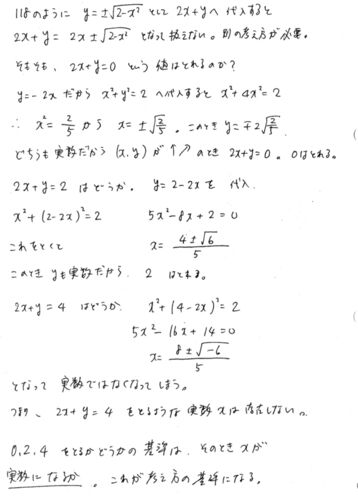 118のように y=±√2-x² として 2x+yへ 代入すると
2x+y = 2x±√2-x² となって扱えない。別の考え方が必要。
そもそも、2x+y=0 という 値はとれるのか?
y=-2x だから x²+y²=2 へ代入すると x²+4x²=2
∴ x²=2/5 から x=±√2/5 。このとき y=∓2√2/5
どちらも実数だから (x,y) が のとき 2x+y=0。0はとれる。
2x+y=2 はどうか。 y=2-2x を 代入
x²+(2-2x)²=2 5x²-8x+2=0
これをとくと x=4±√6/5
このとき yも実数だから 2 はとれる。
2x+y=4 はどうか x²+(4-2x)²=2
5x²-16x+14=0
x=8±√-6/5
となって 実数ではなくなってしまう。
つまり、2x+y=4 をとるような 実数 xは 存在しない。
0,2,4 をとるかどうかの 基準は、そのとき xが
実数になるか 。これが考え方の基準になる。